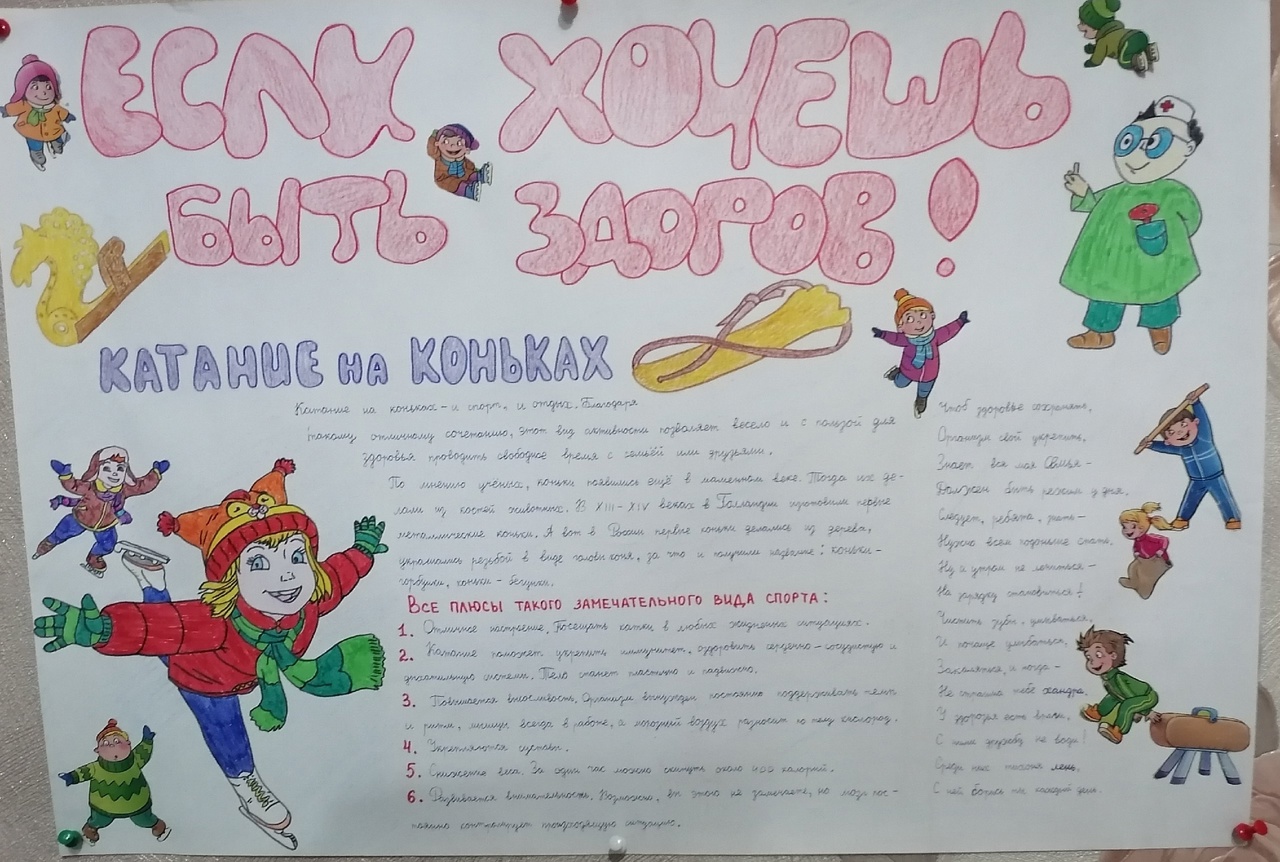 ЕСЛИ ХОЧЕШЬ
БЫТЬ ЗДОРОВ!
КАТАНИЕ НА КОНЬКАХ
Катание на коньках - и спорт, и отдых. Благодаря
такому отличному сочетанию, этот вид активности позволяет весело и с пользой для
здоровья проводить свободное время с семьёй или друзьями.
По мнению учёных, коньки появились ещё в каменном веке. Тогда их де-
лали из костей животных. В XIII-XIV веках в Голландии изготовили первые
металлические коньки. А вот в России первые коньки делались из дерева,
украшались резьбой в виде головы коня, за что и получили название: коньки -
горбунки, коньки - бегунки.
ВСЕ ПЛЮСЫ ТАКОГО ЗАМЕЧАТЕЛЬНОГО ВИДА СПОРТА:
1. Отличное настроение. Посещать катки в любых жизненных ситуациях.
2. Катание поможет укрепить иммунитет, оздоровить сердечно-сосудистую и
дыхательную системы. Тело станет пластично и надёжно.
3. Повышается выносливость. Организм вынужден постоянно поддерживать темп
и ритм, мышцы всегда в работе, а холодный воздух разносит по телу кислород.
4. Укрепляются суставы.
5. Снижение веса. За один час можно скинуть около 400 калорий.
6. Развивается внимательность. Возможно, вы этого не замечаете, но мозг пос-
тоянно контролирует происходящую ситуацию.
Чтоб здоровье сохранить,
Организм свой укрепить,
Знает вся моя Семья -
Должен быть режим у дня.
Следует, ребята, знать -
Нужно всем подольше спать.
Ну а утром не лениться -
На зарядку становиться!
Чистить зубы, умываться,
И почаще улыбаться,
Закаляться, и тогда -
Не страшна тебе хандра.
У здоровья есть враги,
С ними дружбу не води!
Среди них тихоня лень,
С ней борись ты каждый день.